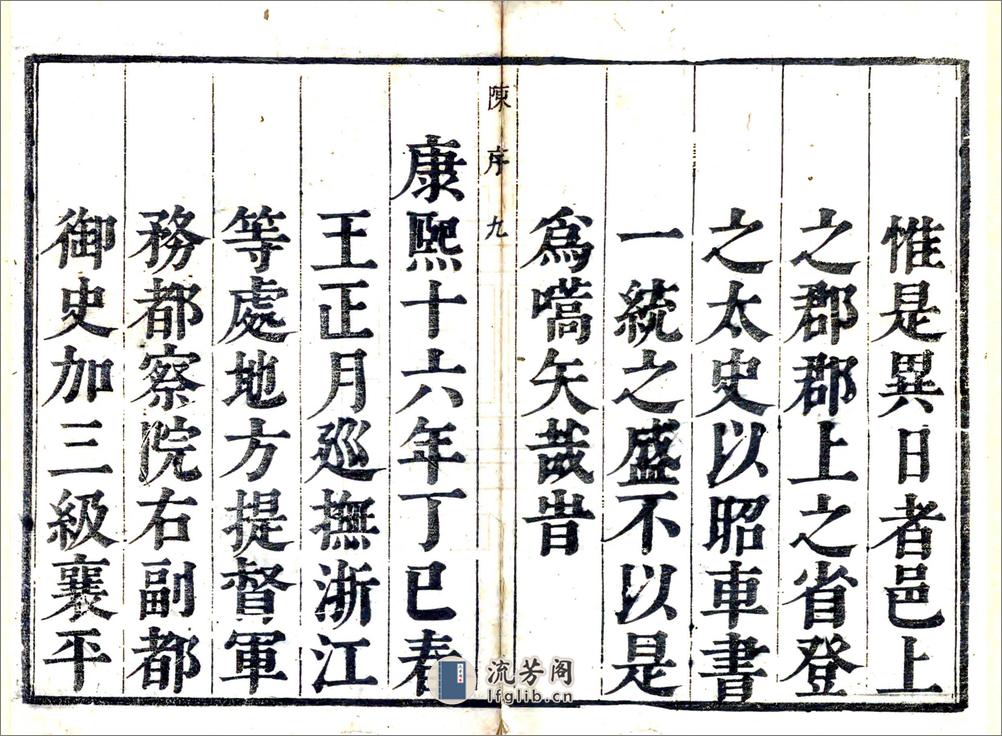 惟是異日者邑上
之郡郡上之省登
之太史以昭車書
一統之盛不以是
爲嚆矢哉旹
陳序 九
康熙十六年丁巳春
王正月廵撫浙江
等處地方提督軍
務都察院右副都
御史加三級襄平
流芳阁
lfglib.cn